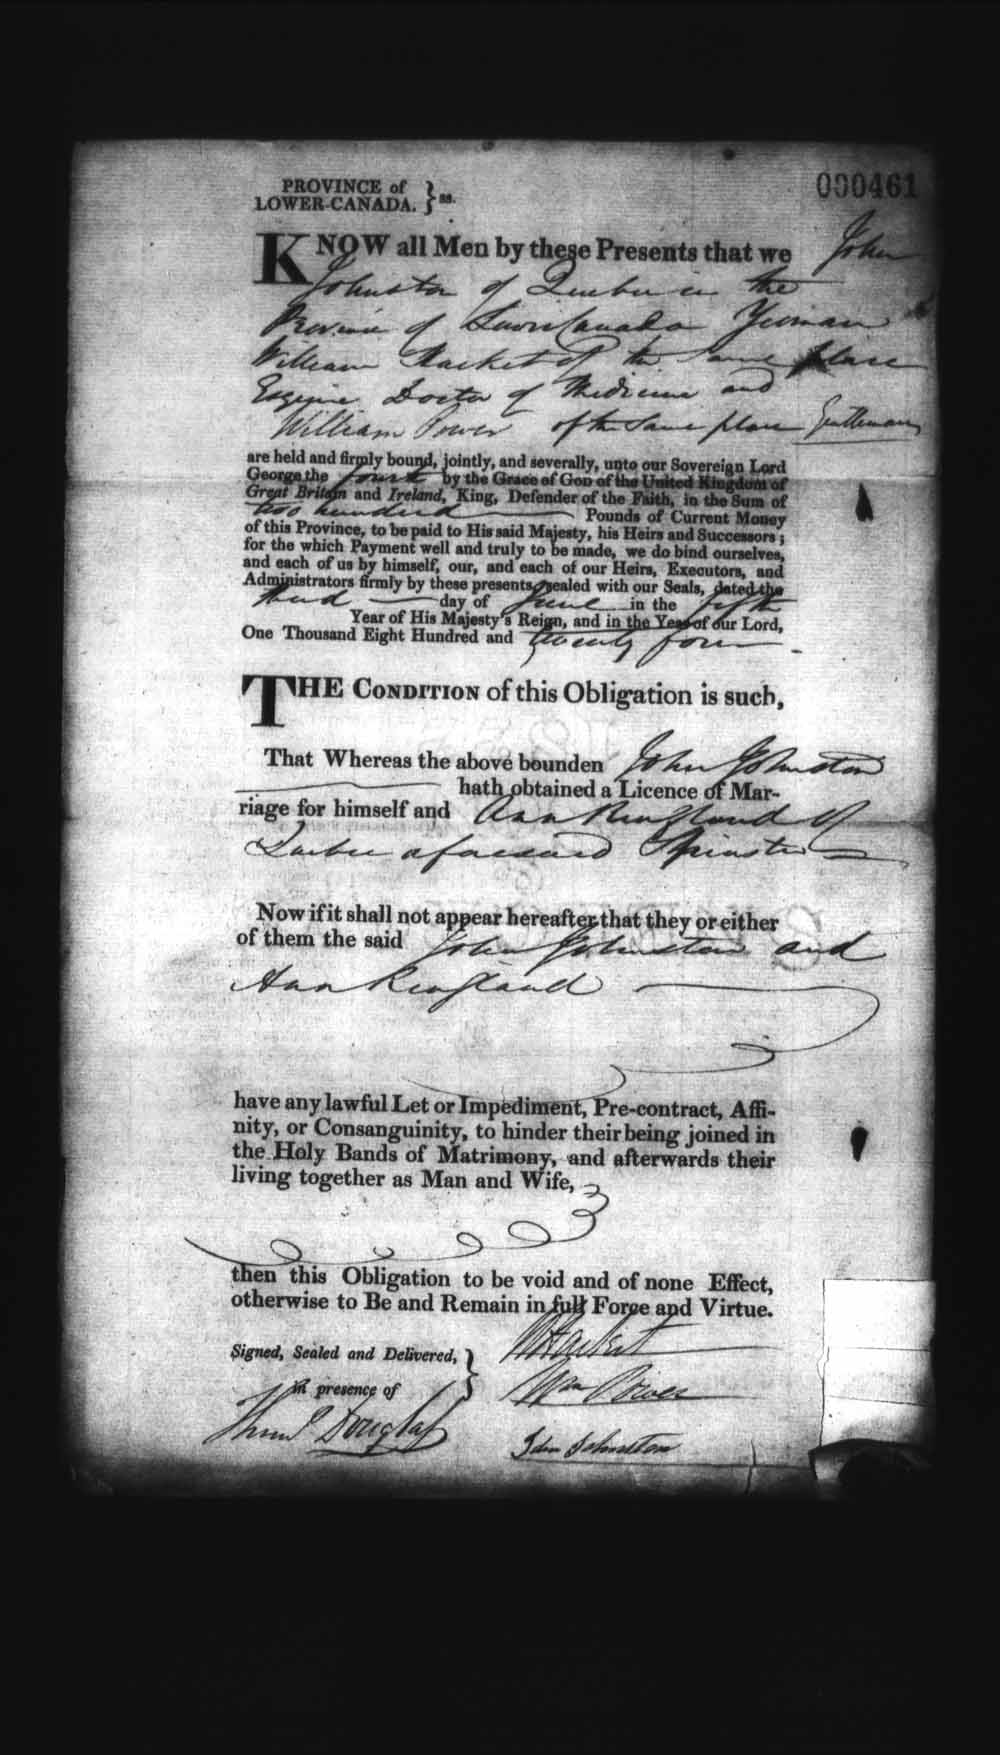 000461
PROVINCE of
LOWER-CANADA. } ss.
KNOW all Men by these Presents that we John
Johnston of Quebec in the
Province of Lower Canada Yeoman
William Hacket of the same place
Esquire Doctor of Medicine and
William Power of the same place Gentleman
are held and firmly bound, jointly, and severally, unto our Sovereign Lord
George the fourth by the Grace of GOD of the United Kingdom of
Great Britain and Ireland, King, Defender of the Faith, in the Sum of
two hundred Pounds of Current Money
of this Province, to be paid to His said Majesty, his Heirs and Successors;
for the which Payment well and truly to be made, we do bind ourselves,
and each of us by himself, our, and each of our Heirs, Executors, and
Administrators firmly by these presents, sealed with our Seals, dated the
third day of June in the fifth
Year of His Majesty's Reign, and in the Year of our Lord,
One Thousand Eight Hundred and twenty four
THE CONDITION of this Obligation is such,
That Whereas the above bounden John Johnston
hath obtained a Licence of Mar-
riage for himself and Ann Kingland of
Quebec aforesaid Spinster
Now if it shall not appear hereafter, that they or either
of them the said John Johnston and
Ann Kingland
have any lawful Let or Impediment, Pre-contract, Affi-
nity, or Consanguinity, to hinder their being joined in
the Holy Bands of Matrimony, and afterwards their
living together as Man and Wife,
then this Obligation to be void and of none Effect,
otherwise to Be and Remain in full Force and Virtue.
Signed, Sealed and Delivered, }
in presence of
W Hacket
Wm Power
Douglas
John Johnston